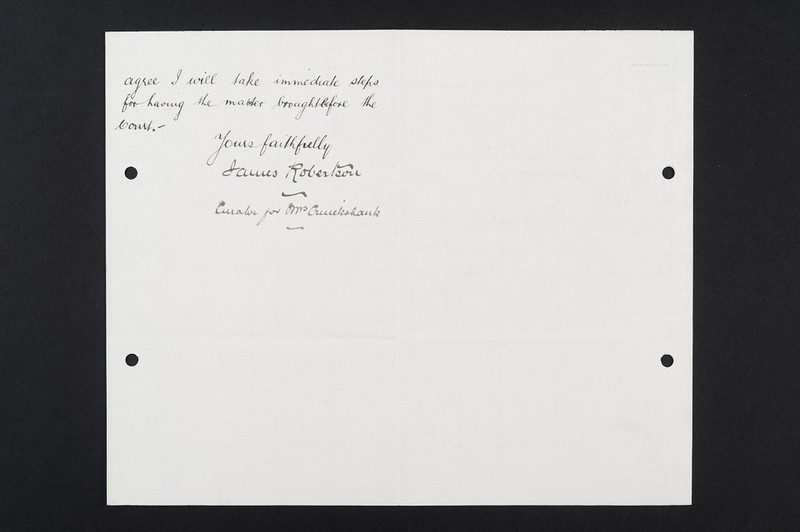 agree I will take immediate steps
for having the matter brought before the
Court.-
Yours faithfully
James Robertson
Curator for Mrs Cruickshank